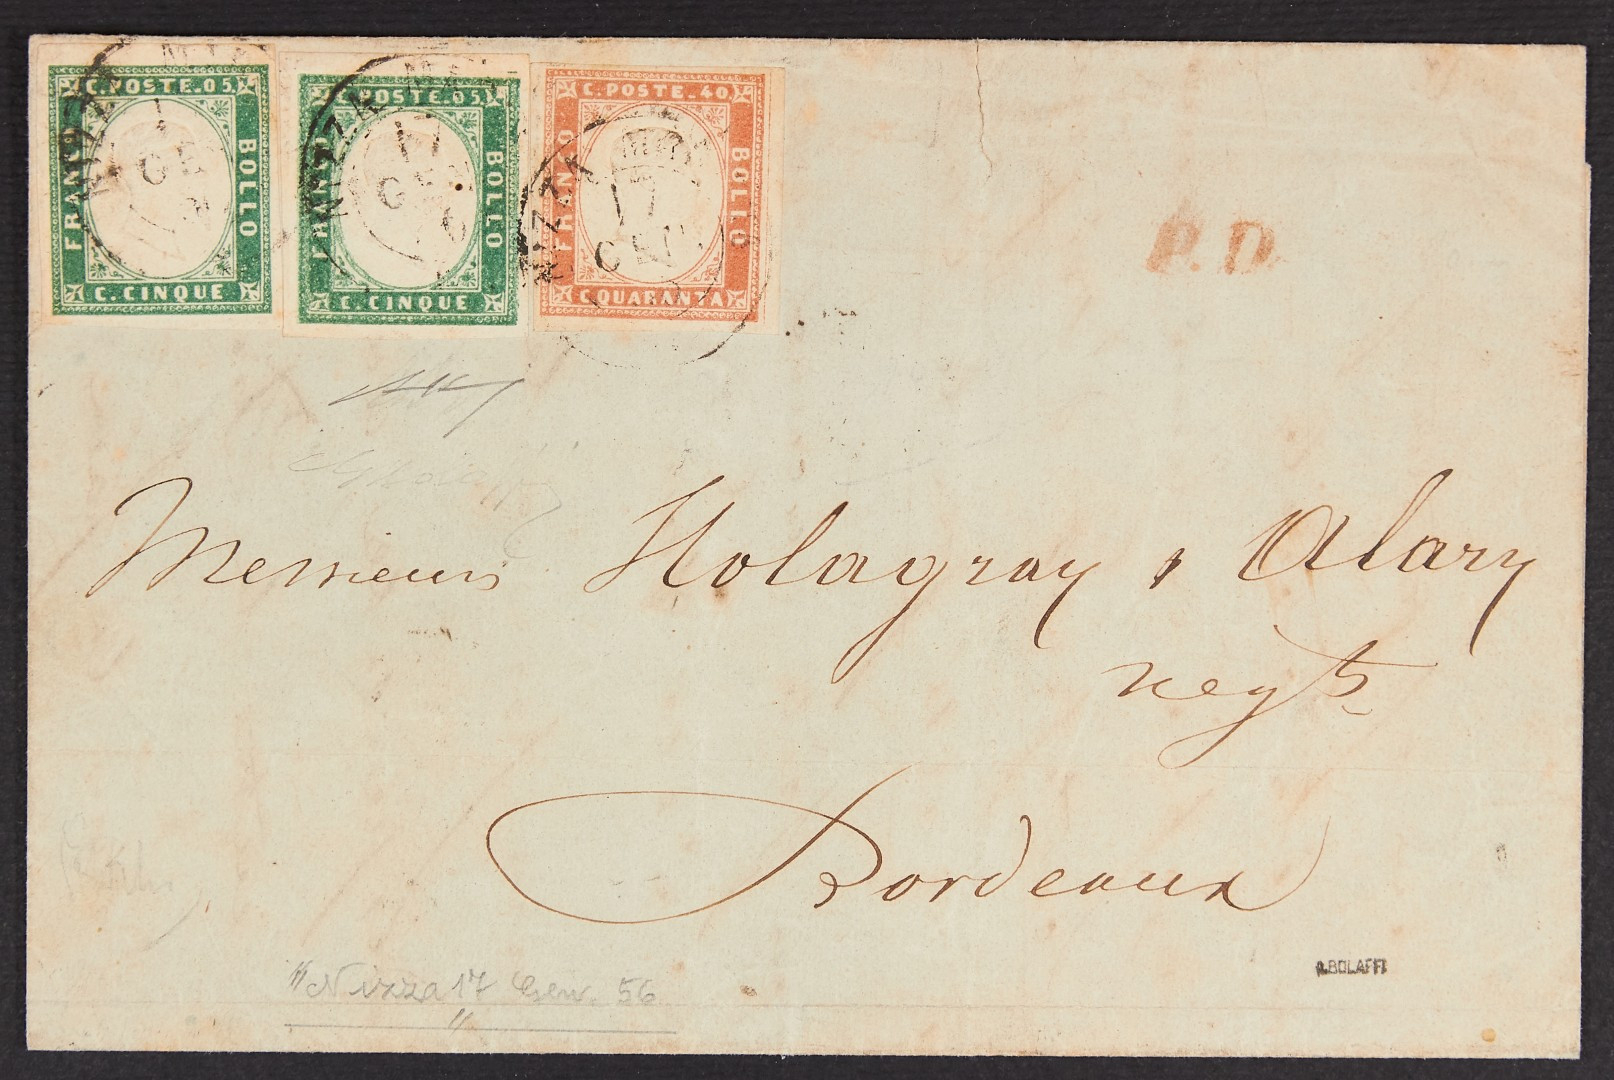 C. POSTE. 05
FRANCO
BOLLO
C. CINQUE
C. POSTE. 05
FRANCO
BOLLO
C. CINQUE
C. POSTE. 40
FRANCO
BOLLO
C. QUARANTA
NIZZA MAR
17
GEN
NIZZA MAR
17
GEN
NIZZA
17
GEN
P.D.
Messieurs Holagray & Alary
negts
Bordeaux
"Nizza 17 Gen. 56
"
A.BOLAFFI